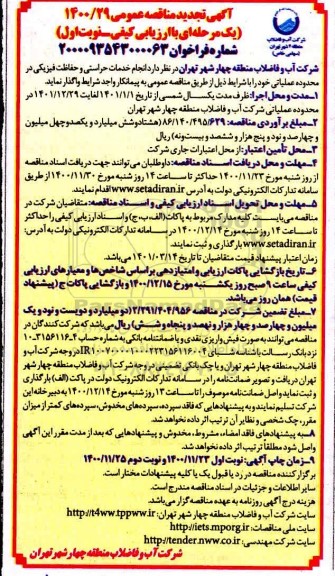 آگهی تجدید مناقصه عمومی ۱۴۰۰/۲۹
(یک مرحله‌ای با ارزیابی کیفی - نوبت اول)
شماره فراخوان ۲۰۰۰۰۹۳۵۴۳۰۰۰۰۶۳
شرکت آب و فاضلاب
منطقه ۴ شهر تهران
(سهامی خاص)
شرکت آب و فاضلاب منطقه چهار شهر تهران در نظر دارد انجام خدمات حراستی و حفاظت فیزیکی در
محدوده عملیاتی خود را با شرایط ذیل از طریق مناقصه عمومی به پیمانکار واجد شرایط واگذار نماید.
۱-مدت و محل اجرا: ظرف مدت یکسال شمسی از تاریخ ۱۴۰۱/۱/۱ لغایت ۱۴۰۱/۱۲/۲۹ در
محدوده عملیاتی شرکت آب و فاضلاب منطقه چهار شهر تهران
۲-مبلغ برآوردی مناقصه: ۸۶/۱۴۰/۴۹۵/۶۲۹ (هشتاد و شش میلیارد و یکصد و چهل میلیون
و چهارصد و نود و پنج هزار و ششصد و بیست و نه) ریال
۳-محل تأمین اعتبار: از محل اعتبارات جاری شرکت
۴-مهلت و محل دریافت اسناد مناقصه: داوطلبان می‌توانند جهت دریافت اسناد مناقصه
از روز شنبه مورخ ۱۴۰۰/۱۱/۲۳ حداکثر تا ساعت ۱۴ روز شنبه مورخ ۱۴۰۰/۱۱/۳۰ از طریق
سامانه تدارکات الکترونیکی دولت به آدرس www.setadiran.ir اقدام نمایند.
۵-مهلت و محل تحویل اسناد ارزیابی کیفی و اسناد مناقصه: متقاضیان شرکت در
مناقصه می‌بایست کلیه مدارک مربوط به پاکات (الف، ب، ج) و اسناد ارزیابی کیفی را حداکثر
تا ساعت ۱۴ روز شنبه مورخ ۱۴۰۰/۱۲/۱۴ در سامانه تدارکات الکترونیکی دولت به آدرس:
www.setadiran.ir بارگذاری و ثبت نمایند.
زمان اعتبار پیشنهاد قیمت متقاضیان تا تاریخ ۱۴۰۱/۰۳/۱۴ می‌باشد.
۶-تاریخ بازگشایی پاکات ارزیابی و امتیازدهی براساس شاخص‌ها و معیارهای ارزیابی
کیفی ساعت ۹ صبح روز یکشنبه مورخ ۱۴۰۰/۱۲/۱۵ و بازگشایی پاکات ج (پیشنهاد
قیمت) همان روز می‌باشد.
۷-مبلغ تضمین شرکت در مناقصه ۲/۲۹۱/۴۰۴/۹۵۶ (دو میلیارد و دویست و نود و یک
میلیون و چهارصد و چهار هزار و نهصد و پنجاه و شش) ریال می‌باشد که شرکت کنندگان در
مناقصه می‌توانند به صورت فیش واریزی نقدی و یا ضمانتنامه بانکی به شماره حساب
نزد بانک رسالت با شناسه شبای
فاضلاب منطقه چهار شهر تهران و یا چک بانکی تضمینی در وجه شرکت آب و فاضلاب منطقه چهار شهر
تهران دریافت و تصویر ضمانت‌نامه را در سامانه تدارکات الکترونیک دولت در پاکت (الف) بارگذاری
و ثبت نماید و اصل ضمانت‌نامه موصوف را تا ساعت ۱۳ روز شنبه مورخ ۱۴۰۰/۱۲/۱۴ به دبیرخانه این
شرکت تسلیم نمایند و به پیشنهادهایی که فاقد سپرده، سپرده‌های مخدوش، سپرده‌های کمتر از میزان
مقرر، چک شخصی و نظایر آن ترتیب اثر داده نخواهد شد.
۸-به پیشنهادهای فاقد امضاء، مشروط، مخدوش و پیشنهادهایی که بعد از مدت مقرر این آگهی
واصل شود مطلقاً ترتیب اثر داده نخواهد شد.
۹-زمان چاپ آگهی: نوبت اول ۱۴۰۰/۱۱/۲۳ و نوبت دوم ۱۴۰۰/۱۱/۲۵
برگزار کننده مناقصه در رد یا قبول یک یا کلیه پیشنهادات مختار است.
سایر اطلاعات و جزئیات در اسناد مناقصه مندرج است.
هزینه درج آگهی روزنامه به عهده مناقصه گزار می‌باشد.
سایت شرکت آب و فاضلاب منطقه چهار شهر تهران: http://t4ww.tppww.ir
سایت ملی مناقصات: http://iets.mporg.ir
سایت شرکت مهندسی: http://tender.nww.co.ir
شرکت آب و فاضلاب منطقه چهار شهر تهران